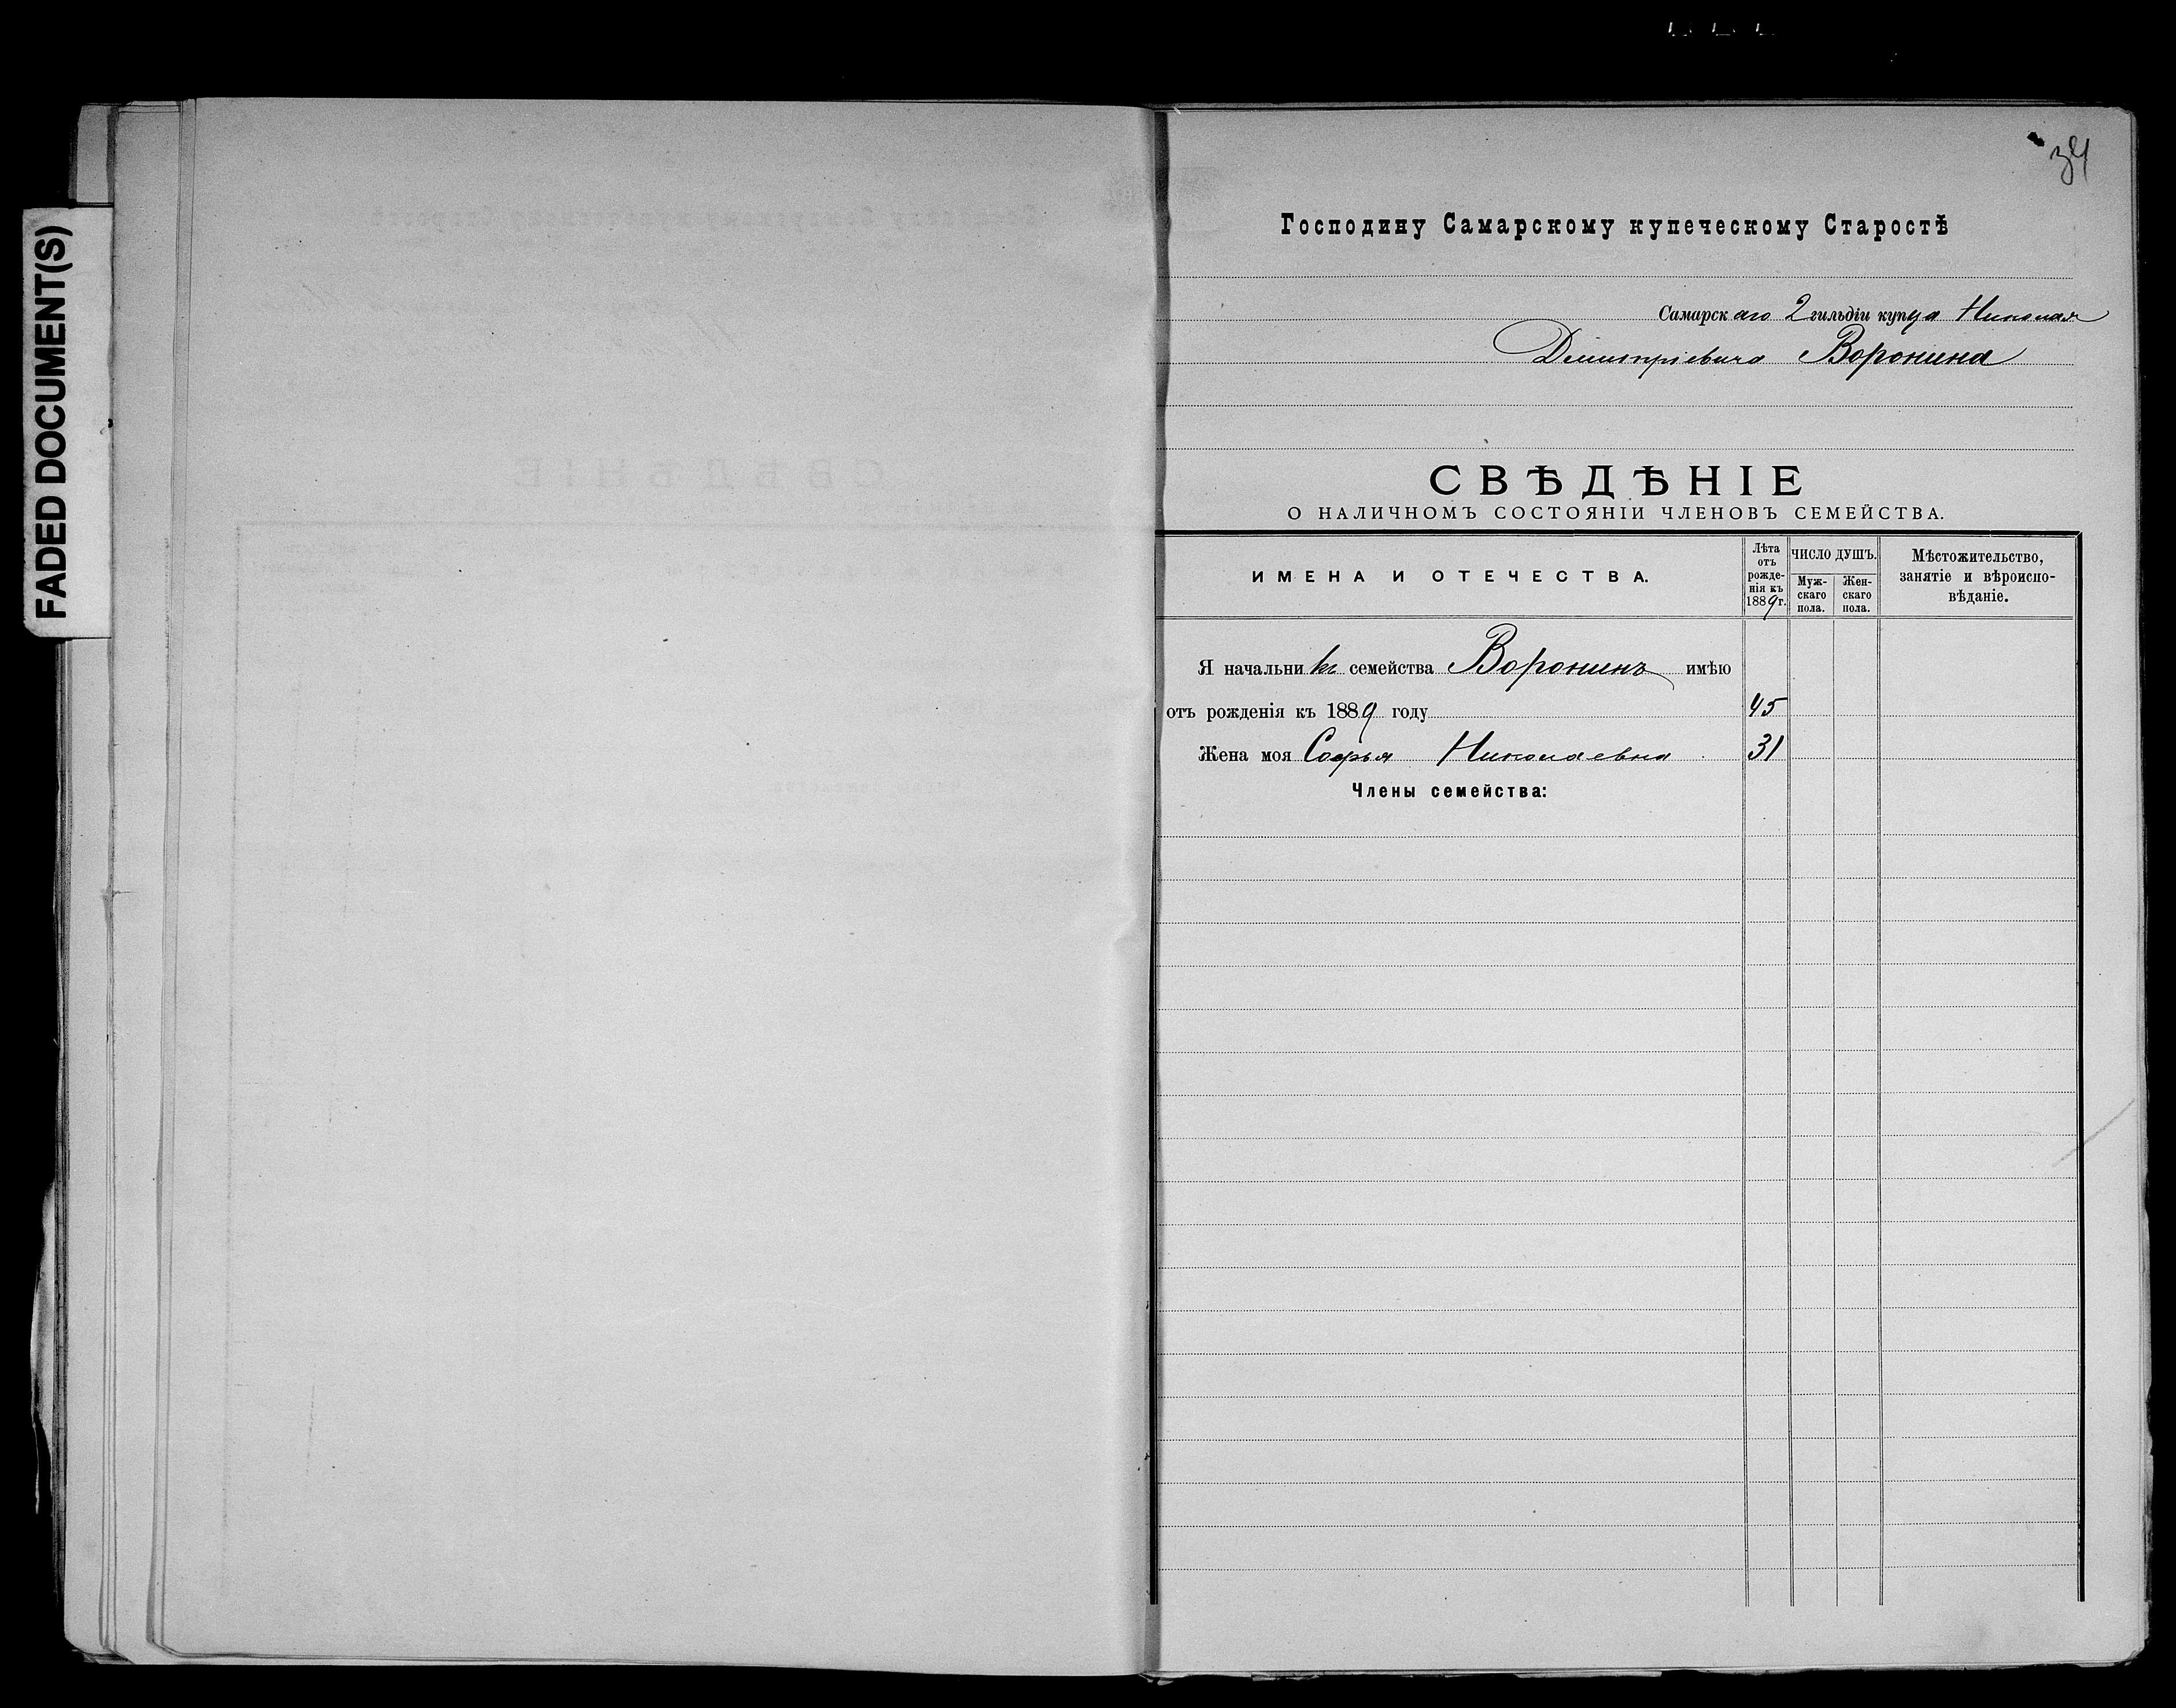 FADED DOCUMENT(S)
34
Господину Самарскому купеческому Старостѣ
Самарскаго 2 гильдіи купца Николая
Димитріевича Воронина
СВѢДѢНІЕ
О НАЛИЧНОМЪ СОСТОЯНІИ ЧЛЕНОВЪ СЕМЕЙСТВА.
ИМЕНА И ОТЕЧЕСТВА.
Лѣта
отъ
рожде-
нія къ
1889 г.
ЧИСЛО ДУШЪ.
Муж-
скаго
пола.
Жен-
скаго
пола.
Мѣстожительство,
занятіе и вѣроиспо-
вѣданіе.
Я начальникъ семейства Воронинъ имѣю
отъ рожденія къ 1889 году 45
Жена моя Софья Николаевна 31
Члены семейства: